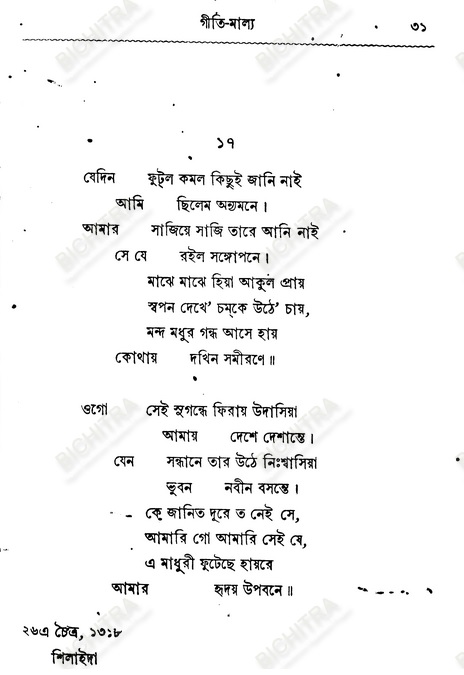 গীতি-মাল্য ৩১
১৭
যেদিন ফুট্‌ল কমল কিছুই জানি নাই
আমি ছিলেম অন্যমনে।
আমার সাজিয়ে সাজি তারে আনি নাই
সে যে রইল সঙ্গোপনে।
মাঝে মাঝে হিয়া আকুল প্রায়
স্বপন দেখে’ চম্‌কে উঠে’ চায়,
মন্দ মধুর গন্ধ আসে হায়
কোথায় দখিন সমীরণে॥
ওগো সেই সুগন্ধে ফিরায় উদাসিয়া
আমায় দেশে দেশান্তে।
যেন সন্ধানে তার উঠে নিঃশ্বাসিয়া
ভুবন নবীন বসন্তে।
কে জানিত দূরে ত নেই সে,
আমারি গো আমারি সেই যে,
এ মাধুরী ফুটেছে হায়রে
আমার হৃদয় উপবনে॥
২৬এ চৈত্র, ১৩১৮
শিলাইদা
BICHITRA
BICHITRA
BICHITRA
BICHITRA
BICHITRA
BICHITRA
BICHITRA
BICHITRA
BICHITRA